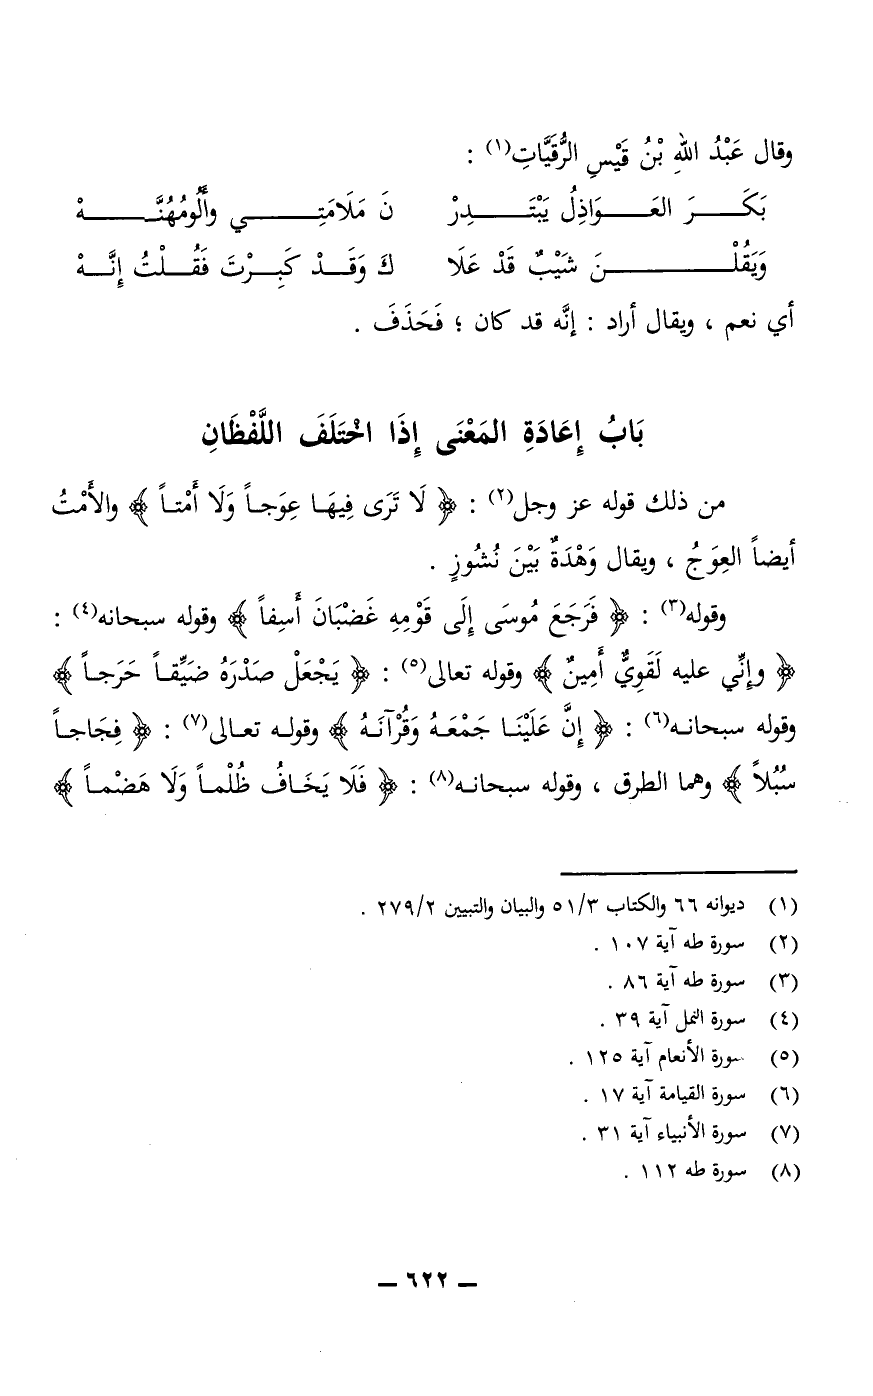 وقال عَبْدُ اللهِ بْنُ قَيْسِ الرُّقَيَّاتِ(١) :
بَكَرَ العَوَاذِلُ يَبْتَدِرْ نَ مَلَامَتِي وأَلُومُهُنَّهْ
وَيَقُلْنَ شَيْبٌ قَدْ عَلَا كَ وَقَدْ كَبِرْتَ فَقُلْتُ إِنَّهْ
أي نعم ، ويقال أراد : إنَّه قد كان ؛ فَحَذَفَ .
بَابُ إِعَادَةِ المَعْنَى إِذَا اخْتَلَفَ اللَّفْظَانِ
من ذلك قوله عز وجل(٢) : ﴿ لَا تَرَى فِيهَا عِوَجاً وَلَا أَمْتاً ﴾ والأَمْتُ
أيضاً العِوَجُ ، ويقال وَهْدَةٌ بَيْنَ نُشُوزٍ .
وقوله(٣) : ﴿ فَرَجَعَ مُوسَى إِلَى قَوْمِهِ غَضْبَانَ أَسِفاً ﴾ وقوله سبحانه(٤) :
﴿ وإِنِّي عليه لَقَوِيٌّ أَمِينٌ ﴾ وقوله تعالى(٥) : ﴿ يَجْعَلْ صَدْرَهُ ضَيِّقاً حَرَجاً ﴾
وقوله سبحانه(٦) : ﴿ إِنَّ عَلَيْنَا جَمْعَهُ وَقُرْآنَهُ ﴾ وقوله تعالى(٧) : ﴿ فِجَاجاً
سُبُلاً ﴾ وهما الطرق ، وقوله سبحانه(٨) : ﴿ فَلَا يَخَافُ ظُلْماً وَلَا هَضْماً ﴾
(١) ديوانه ٦٦ والكتاب ٥١/٣ والبيان والتبيين ٢٧٩/٢ .
(٢) سورة طه آية ١٠٧ .
(٣) سورة طه آية ٨٦ .
(٤) سورة النمل آية ٣٩ .
(٥) سورة الأنعام آية ١٢٥ .
(٦) سورة القيامة آية ١٧ .
(٧) سورة الأنبياء آية ٣١ .
(٨) سورة طه ١١٢ .
ــ ٦٢٢ ــ